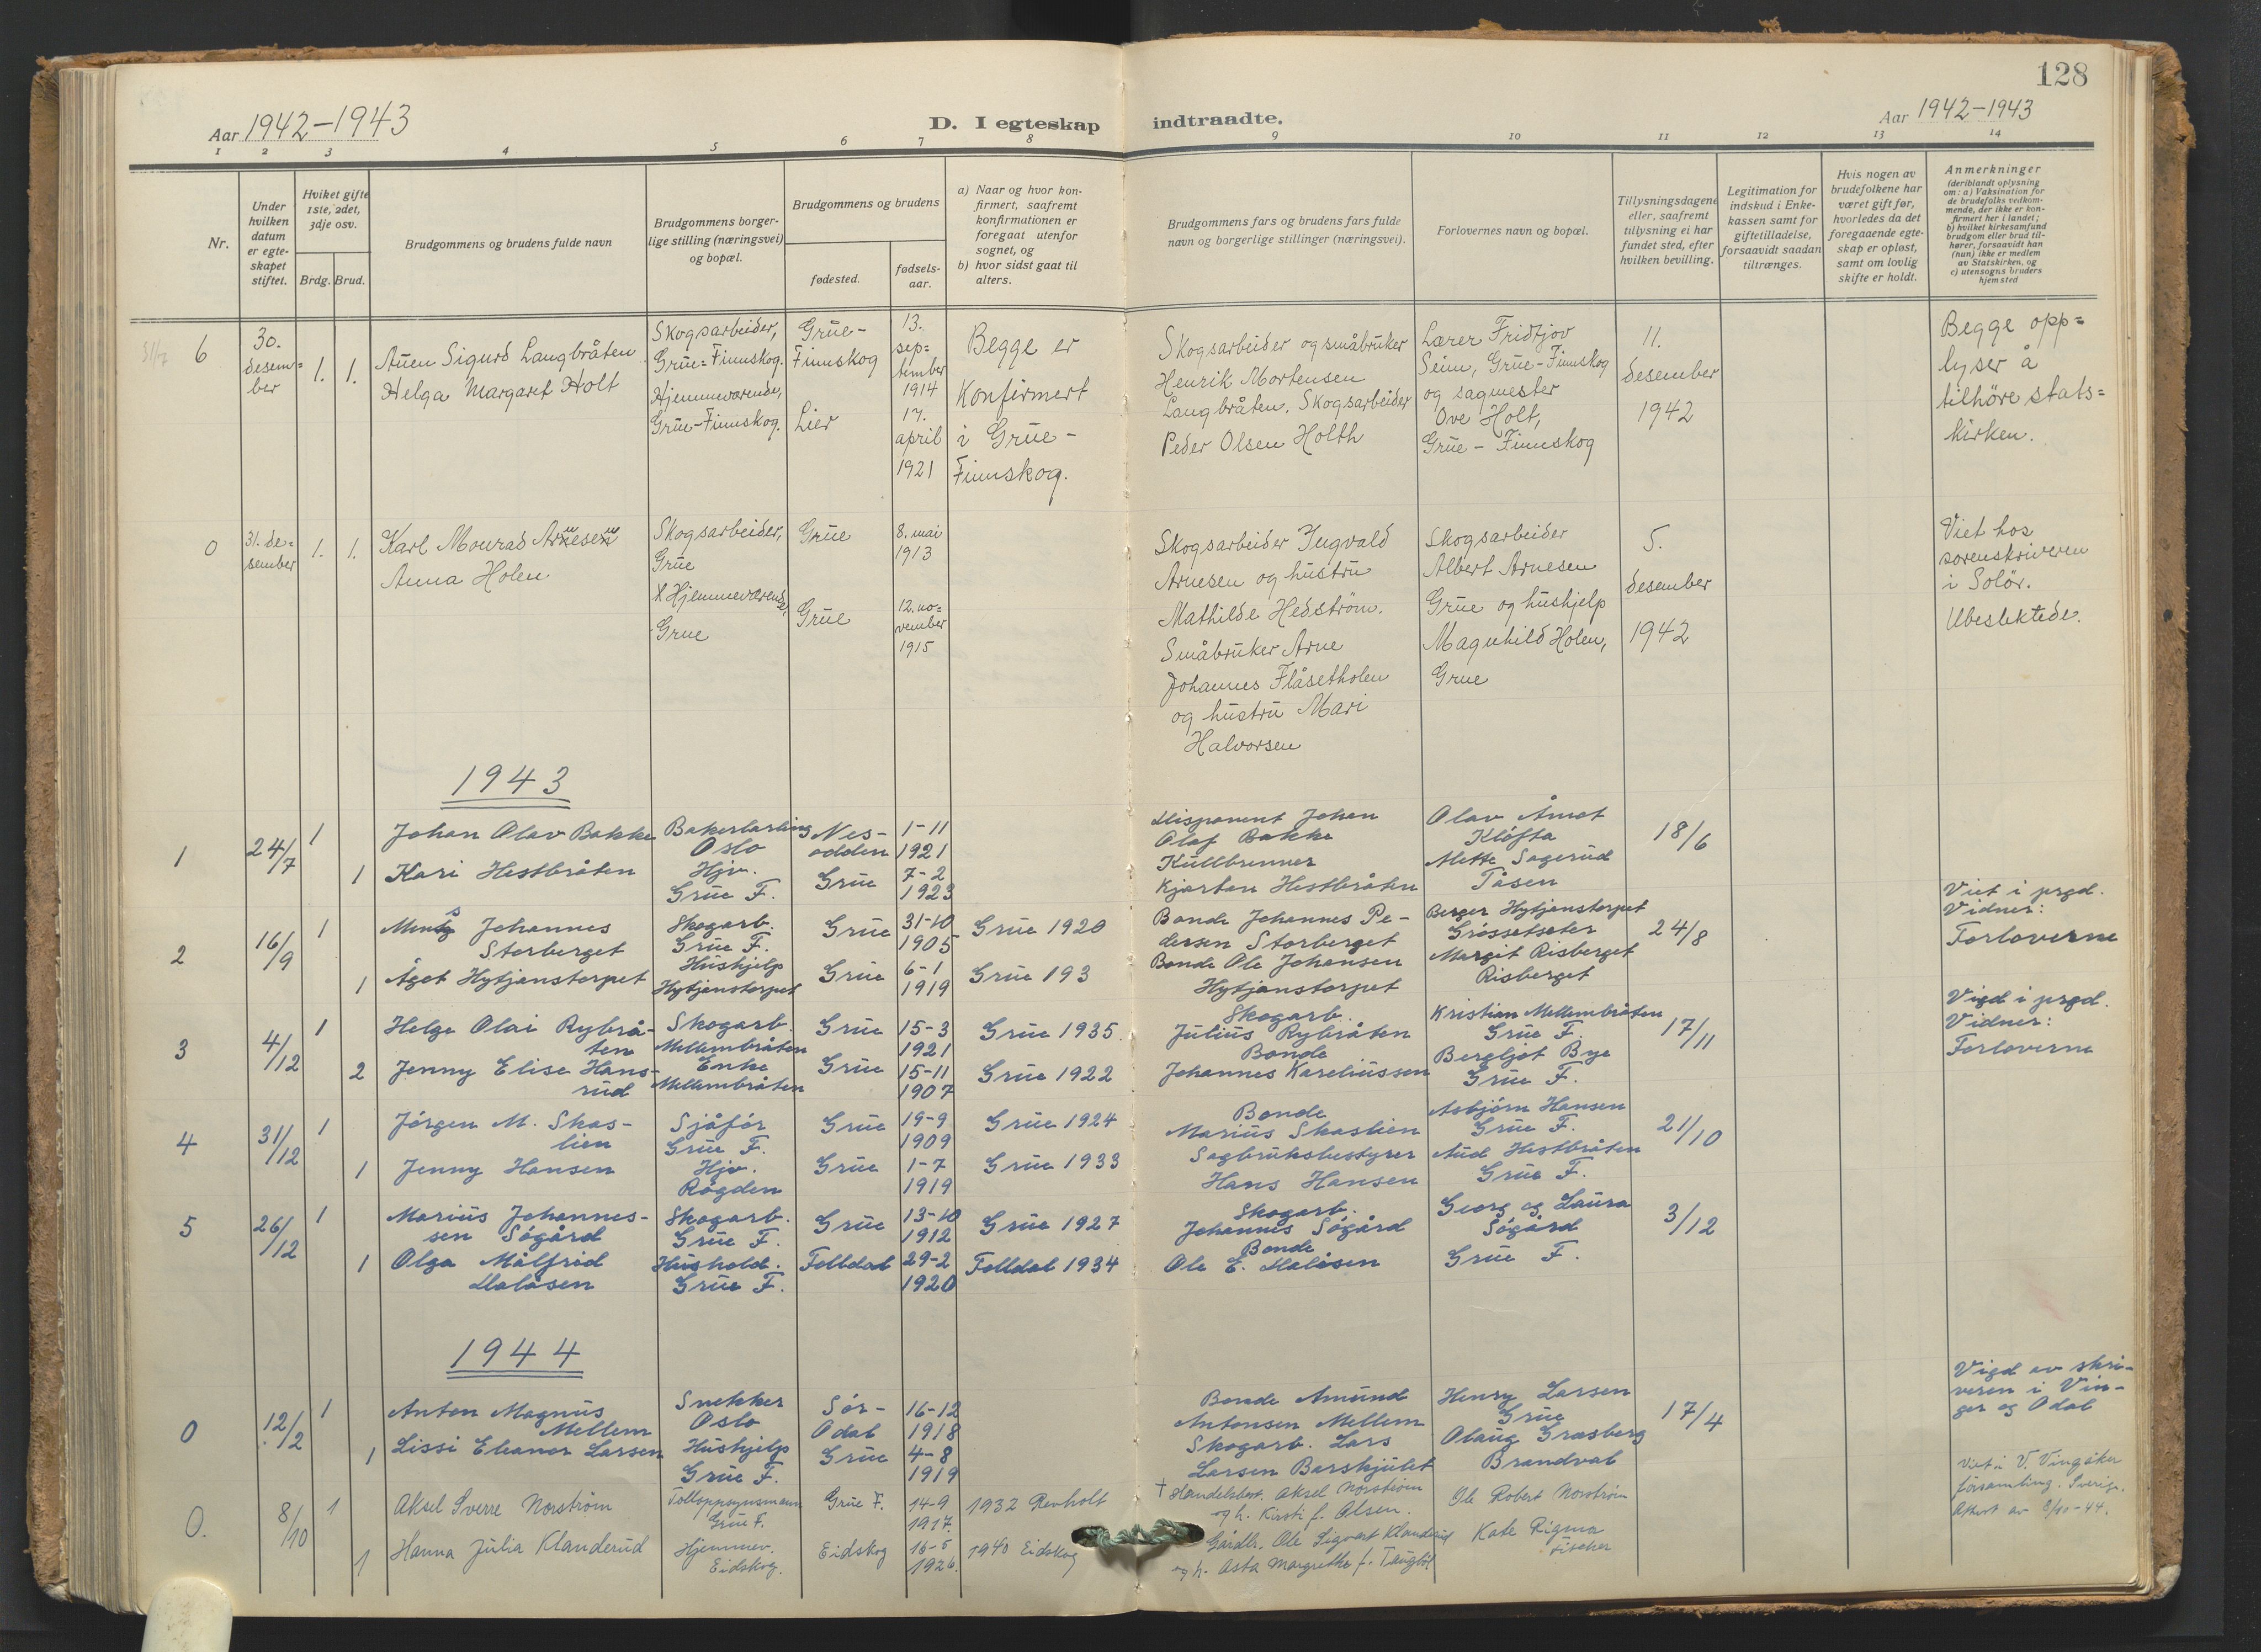 128
Aar 1942-1943
D. I egteskap
indtraadte.
Aar 1942-1943
1 2 3 4 5 6 7 8 9 10 11 12 13 14
Nr.
Under
hvilken
datum
er egte-
skapet
stiftet.
Hviket gifte
1ste, 2det,
3dje osv.
Brdg. Brud.
Brudgommens og brudens fulde navn
Brudgommens borger-
lige stilling (næringsvei)
og bopæl.
Brudgommens og brudens
fødested.
fødsels-
aar.
a) Naar og hvor kon-
firmert, saafremt
konfirmationen er
foregaat utenfor
sognet, og
b) hvor sidst gaat til
alters.
Brudgommens fars og brudens fars fulde
navn og borgerlige stillinger (næringsvei).
Forlovernes navn og bopæl.
Tillysningsdagene
eller, saafremt
tillysning ei har
fundet sted, efter
hvilken bevilling.
Legitimation for
indskud i Enke-
kassen samt for
giftetilladelse,
forsaavidt saadan
tiltrænges.
Hvis nogen av
brudefolkene har
været gift før,
hvorledes da det
foregaaende egte-
skap er opløst,
samt om lovlig
skifte er holdt.
Anmerkninger
(deriblandt oplysning
om: a) Vaksination for
de brudefolks vedkom-
mende, der ikke er kon-
firmert her i landet;
b) hvilket kirkesamfund
brudgom eller brud til-
hører, forsaavidt han
(hun) ikke er medlem
av Statskirken, og
c) utensogns bruders
hjemsted
6
30.
desem=
ber
1. 1.
Auen Sigurd Langbråten
Helga Margaret Holt
Skogsarbeider,
Grue=Finnskog.
Hjemmeværende,
Grue-Finnskog.
Grue-
Finnskog
Lier
13.
sep=
tember
1914
17.
april
1921
Begge er
Konfirmert
i Grue-
Finnskog.
Skogsarbeider og småbruker
Henrik Mortensen
Langbråten. Skogsarbeider
Peder Olsen Holth
Lærer Fridtjov
Seim, Grue-Finnskog
og sagmester
Ove Holt,
Grue - Finnskog
11.
desember
1942
Begge opp=
lyser å
tilhöre stats=
kirken.
0
31. de=
sember
1. 1.
Karl Monrad Arnesen
Anna Holen
Skogsarbeider,
Grue
X Hjemmeværende,
Grue
Grue
Grue
8. mai
1913
12. no=
vember
1915
Skogsarbeider Ingvald
Arnesen og hustru
Mathilde Hedström.
Småbruker Arne
Johannes Flåsetholen
og hustru Mari
Halvorsen
Skogsarbeider
Albert Arnesen
Grue og hushjelp
Magnhild Holen,
Grue
5.
desember
1942
Viet hos
sorenskriveren
i Solör.
Ubeslektede.
1943
1
24/7
1
1
Johan Olav Bakke
Kari Hestbråten
Bakerlærling
Oslo
Hjv.
Grue F.
Nes-
odden
Grue
1-11
1921
7-2
1923
Disponent Johan
Olaf Bakke
Kullbrenner
Kjartan Hestbråten
Olav Åmot
Kløfta
Mette Sagerud
Tåsen
18/6
2
16/9
1
1
Johannes
Storberget
Ågot Hytjanstorpet
Skogarb.
Grue F.
Hushjelp
Hytjanstorpet
Grue
Grue
31-10
1905
6-1
1919
Grue 1920
Grue 193
Bonde Johannes Pe-
dersen Storberget
Bonde Ole Johansen
Hytjanstorpet
Berger Hytjanstorpet
Grøssetseter
Margit Risberget
Risberget
24/8
Viet i prgd.
Vidner:
Forloverne
3
4/12
1
2
Helge Olai Rybrå-
ten
Jenny Elise Hans-
rud
Skogarb.
Mellembråten
Enke
Mellembråten
Grue
Grue
15-3
1921
15-11
1907
Grue 1935.
Grue 1922
Skogarb.
Julius Rybråten
Bonde
Johannes Kareliussen
Kristian Mellembråten
Grue F.
Bergljot Bye
Grue F.
17/11
Vigd i prgd.
Vidner:
Forloverne
4
31/12
1
1
Jørgen M. Skas-
lien
Jenny Hansen
Sjåfør
Grue F.
Hjv.
Røgden
Grue
Grue
19-9
1909
1-7
1919
Grue 1924
Grue 1933
Bonde
Marius Skaslien
Sagbruksbestyrer
Hans Hansen
Asbjørn Hansen
Grue F.
Aud Hestbråten
Grue F.
21/10
5
26/12
1
1
Marius Johannes-
sen Søgård
Olga Målfrid
Daløsen
Skogarb.
Grue F.
Hushold.
Grue F.
Grue
Folldal
13-10
1912
29-2
1920
Grue 1927
Folldal 1934
Skogarb.
Johannes Søgård
Bonde
Ole E. Daløsen
Georg og Laura
Søgård
Grue F.
3/12
1944
0
12/2
1
1
Anton Magnus
Mellem
Lissi Eleanor Larsen
Snekker
Oslo
Hushjelp
Grue F.
Sør-
Odal
Grue
16-12
1918
4-8
1919
Bonde Amund
Antonsen Mellem
Skogarb. Lars
Larsen Barskjulet
Henry Larsen
Grue
Olaug Græsberg
Brandval
17/4
Vigd av skri-
veren i Vin-
ger og Odal
0.
8/10
1
1
Aksel Sverre Norström
Hanna Julia Klanderud
Tolloppsynsmann
Grue F.
Hjemmev.
Eidskog.
Grue F.
Eidskog
14-9
1917.
16-5
1926.
1932 Revholt
1940 Eidskog
† Handelsbest. Aksel Norström
og h. Kirsti f. Olsen.
Gårdbr. Ole Sigvart Klanderud
og h. Asta Margrethe f. Tangløl
Ole Robert Norström
Kate Rigma
Fischer
Viet i V. Vingåker
församling. Sverige.
Attest av 8/10-44.